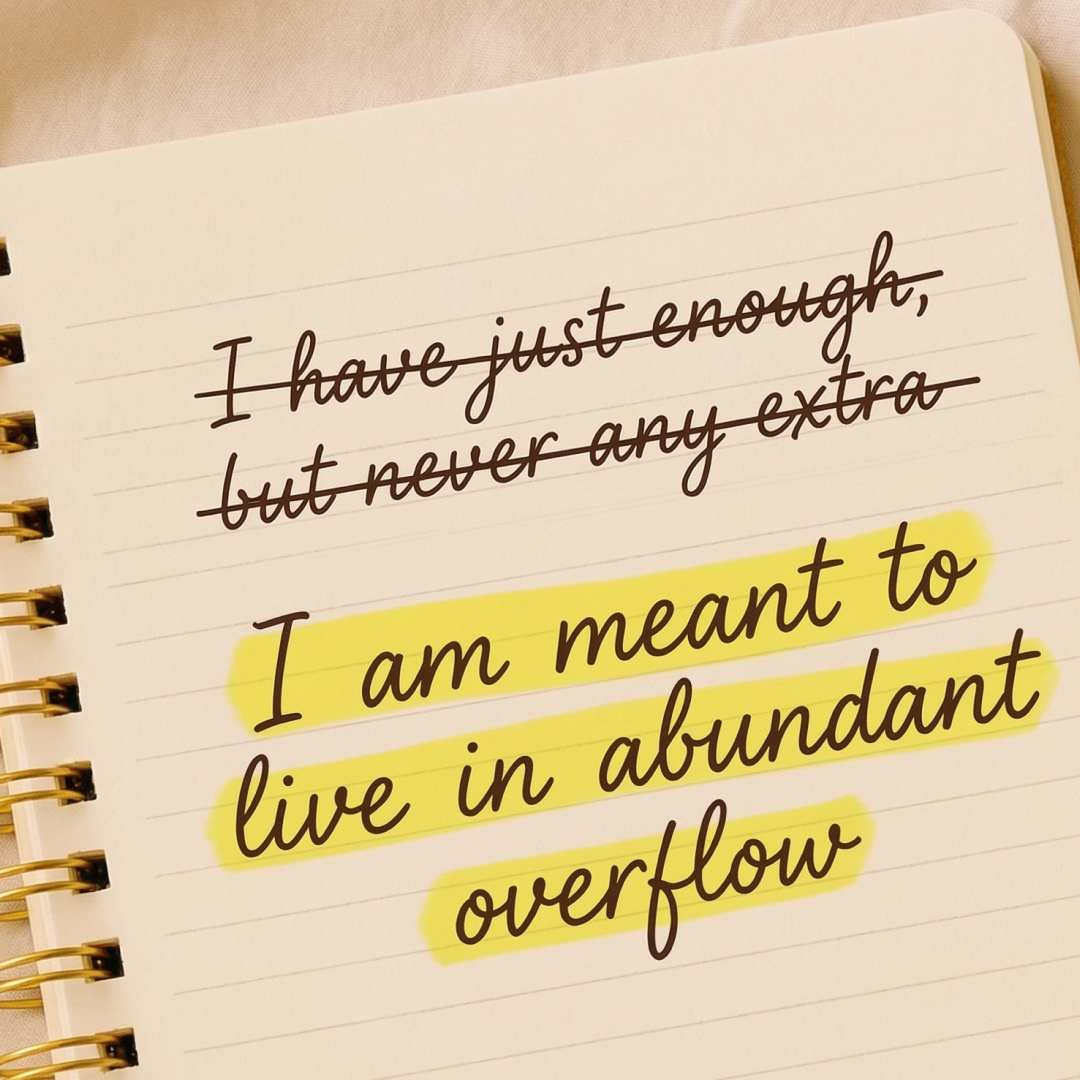 I have just enough,
but never any extra
I am meant to
live in abundant
overflow